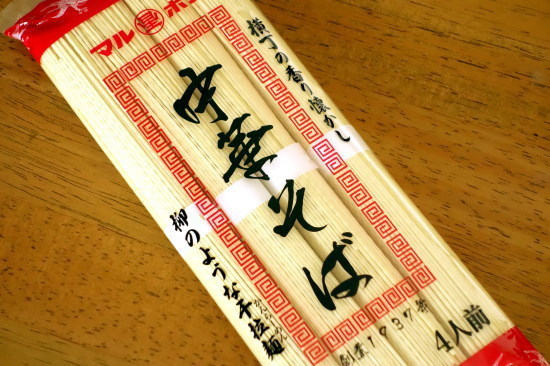 マル
横丁の香り懐かし
中華そば
柳のような干拉麺
創業1937年
4人前